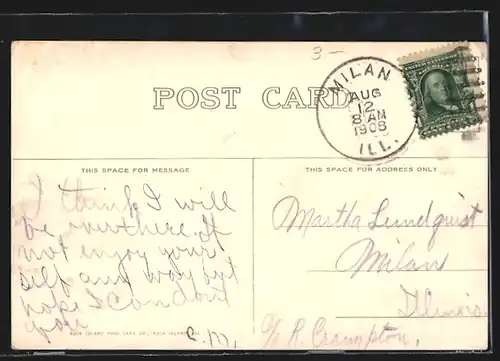 3-
MILAN
AUG
12
8 AM
1908
ILL.
POST CARD
THIS SPACE FOR MESSAGE
THIS SPACE FOR ADDRESS ONLY
I think I will
be over there. If
not enjoy your
self any way but
hope I can dont
you
C. M.
Martha Lundquist
Milan
Illinois.
c/o R. Crampton.
ROCK ISLAND POST CARD CO., ROCK ISLAND, ILL.